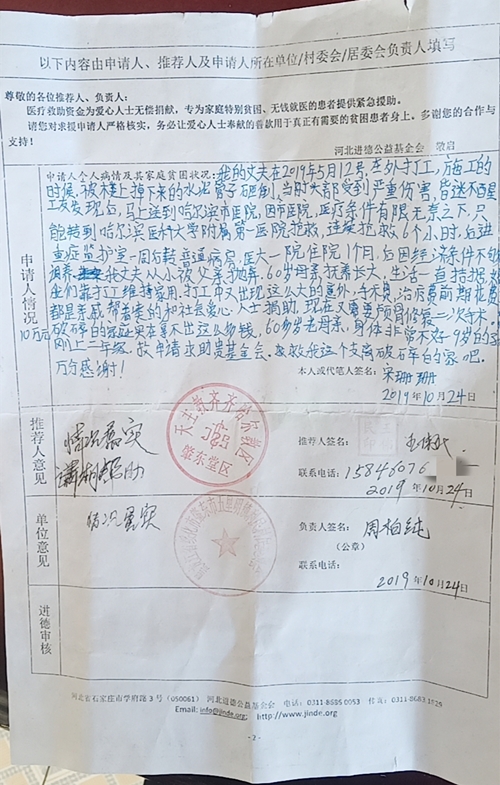 以下内容由申请人、推荐人及申请人所在单位/村委会/居委会负责人填写
尊敬的各位推荐人、负责人:
医疗救助资金为爱心人士无偿捐献，专为家庭特别贫困、无钱就医的患者提供紧急援助。
请您对求援申请人严格核实，务必让爱心人士奉献的善款用于真正有需要的贫困患者身上。多谢您的合作与
支持!
河北进德公益基金会 敬启
申请人情况
申请人个人病情及其家庭贫困状况:我的丈夫在2019年5月12号,在外打工,施工的
时候,被楼上掉下来的水泥管子砸倒,当时头部受到严重伤害,昏迷不醒
工友发现后,马上送到哈尔滨市医院,因市医院,医疗条件有限无奈之下,只
能转到哈尔滨医科大学附属第一医院抢救,连续抢救6个小时,后进
重症监护室一周后转普通病房,医大一院住院1个月,后因经济条件不够
我丈夫从小被父亲抛弃60岁母亲抚养长大,生活一直拮据
靠打工维持家用.打工中又出现这么大的意外,手术费,治病费前期花费
10万元
都是亲戚帮着凑的和社会爱心人士捐助,现在又需要颅骨修复二次手术,
破碎的家庭实在拿不出这么多钱,60多岁老母亲,身体非常不好9岁的
刚上二年级.故申请求助贵基金会,救救我这个支离破碎的家吧.
万分感谢!
本人或代笔人签名: 宋珊珊
2019年10月24日
推荐人意见
情况属实
请帮助
天主教齐齐哈尔教区
肇东堂区
推荐人签名:
联系电话: 15846076
2019年10月24日
单位意见
情况属实
负责人签名: 周柏纯
(公章)
联系电话:
2019年10月24日
进德审核
河北省石家庄市学府路3号(050061) 河北进德公益基金会 电话: 0311 8685 0053 传真: 0311 8683 1825
Email: info@jinde.org; http://www.jinde.org
- 2 -